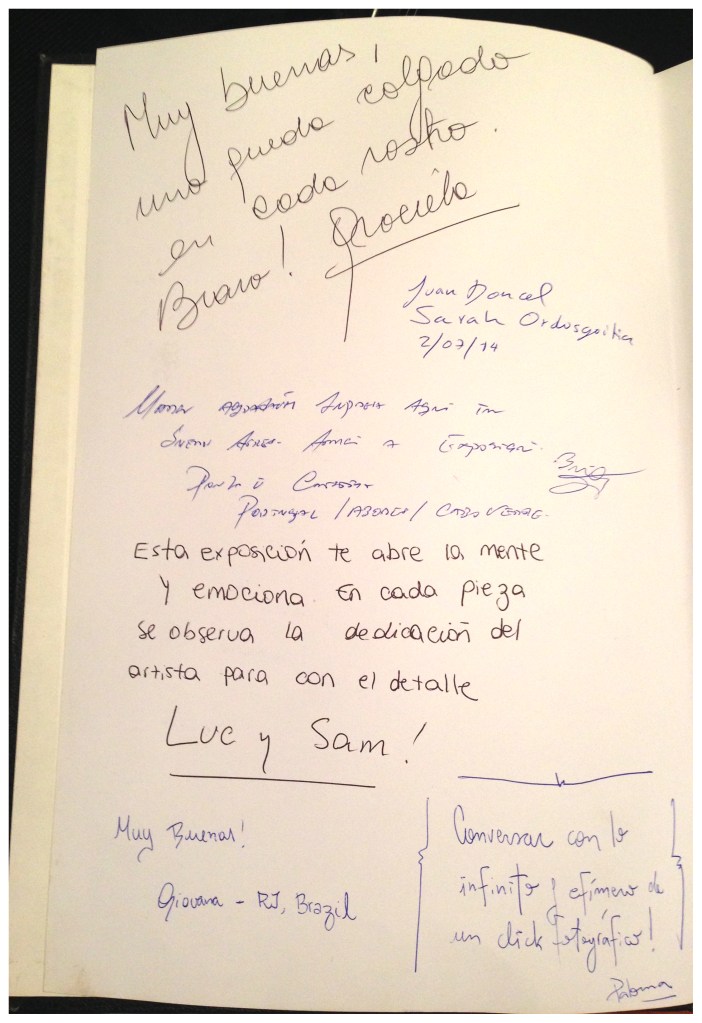 Muy buenas,
uno queda colgado
en cada rostro.
Bravo! Graciela
Juan Doncel
Sarah Ordosgoitia
2/07/14
Aqui
a
Portugal /
Esta exposición te abre la mente
y emociona. En cada pieza
se observa la dedicación del
artista para con el detalle
Luc y Sam!
Muy Buenas!
Giovana - RJ, Brazil
Conversar con lo
infinito y efímero de
un click fotográfico!
Paloma